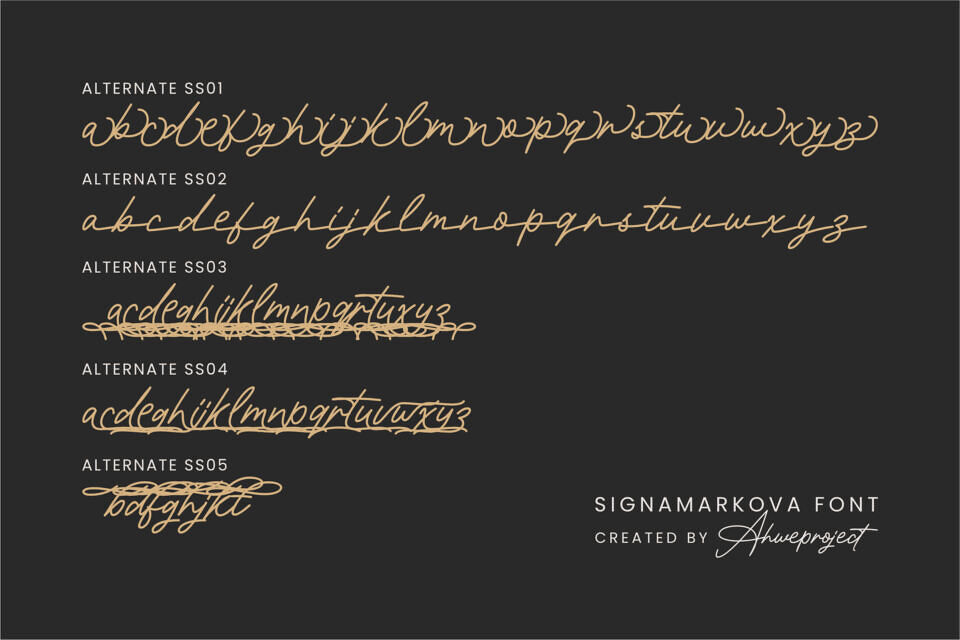 ALTERNATE SS01
abcdefghijklmnopqrstuvwxyz
ALTERNATE SS02
abcdefghijklmnopqrstuvwxyz
ALTERNATE SS03
acdeghijklmnpqrtuxyz
ALTERNATE SS04
acdeghijklmnpqrtuvwxyz
ALTERNATE SS05
bdfghjklt
SIGNAMARKOVA FONT
CREATED BY Ahweproject